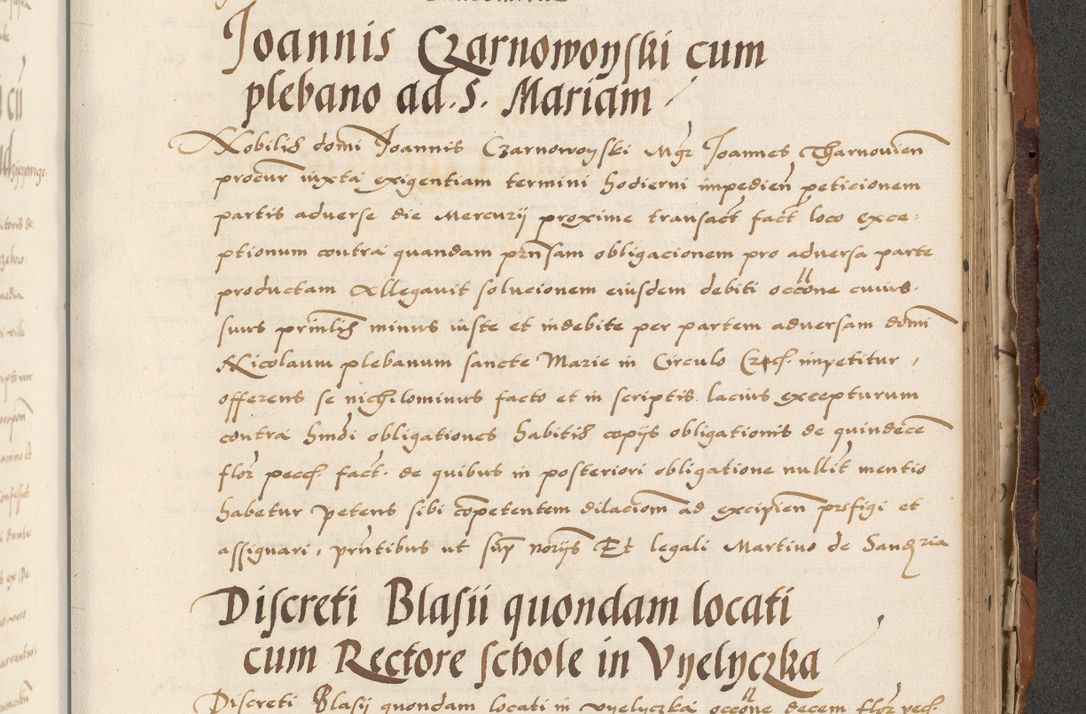 Joannis Czarnowoyski cum
plebano ad. S. Mariam
Nobilis domi Joannis Czarnowoyski Mgr Joannes Tharnouien
procur iuxta exigentiam termini hodierni impedien peticionem
partis adverse die Mercurij proxime transact fact loco exce:
ptionum contra quandam prnsam obligacionem pro adversa parte
productam Allegavit solucionem eiusdem debiti occone cuius.
suus prinlis minus iuste et indebite per partem adversam domi
Nicolaum plebanum sancte Marie in Circulo impetitur,
offerens se nichilominus facto et in scriptis lacius excepturum
contra hmoi obligationes habitis copijs obligationis de quindece
flor pecc fact. de quibus in posteriori obligatione nullit mentio
habetur petens sibi competentem dilaciom ad excipien prefigi et
assignari, prntibus ut sup norijs Et legali Martino de Sandzria
Discreti Blasii quondam locati
cum Rectore schole in Vyelyczka
Discreti Blasij quondam locati in vyelyczka occone decem flor pecc